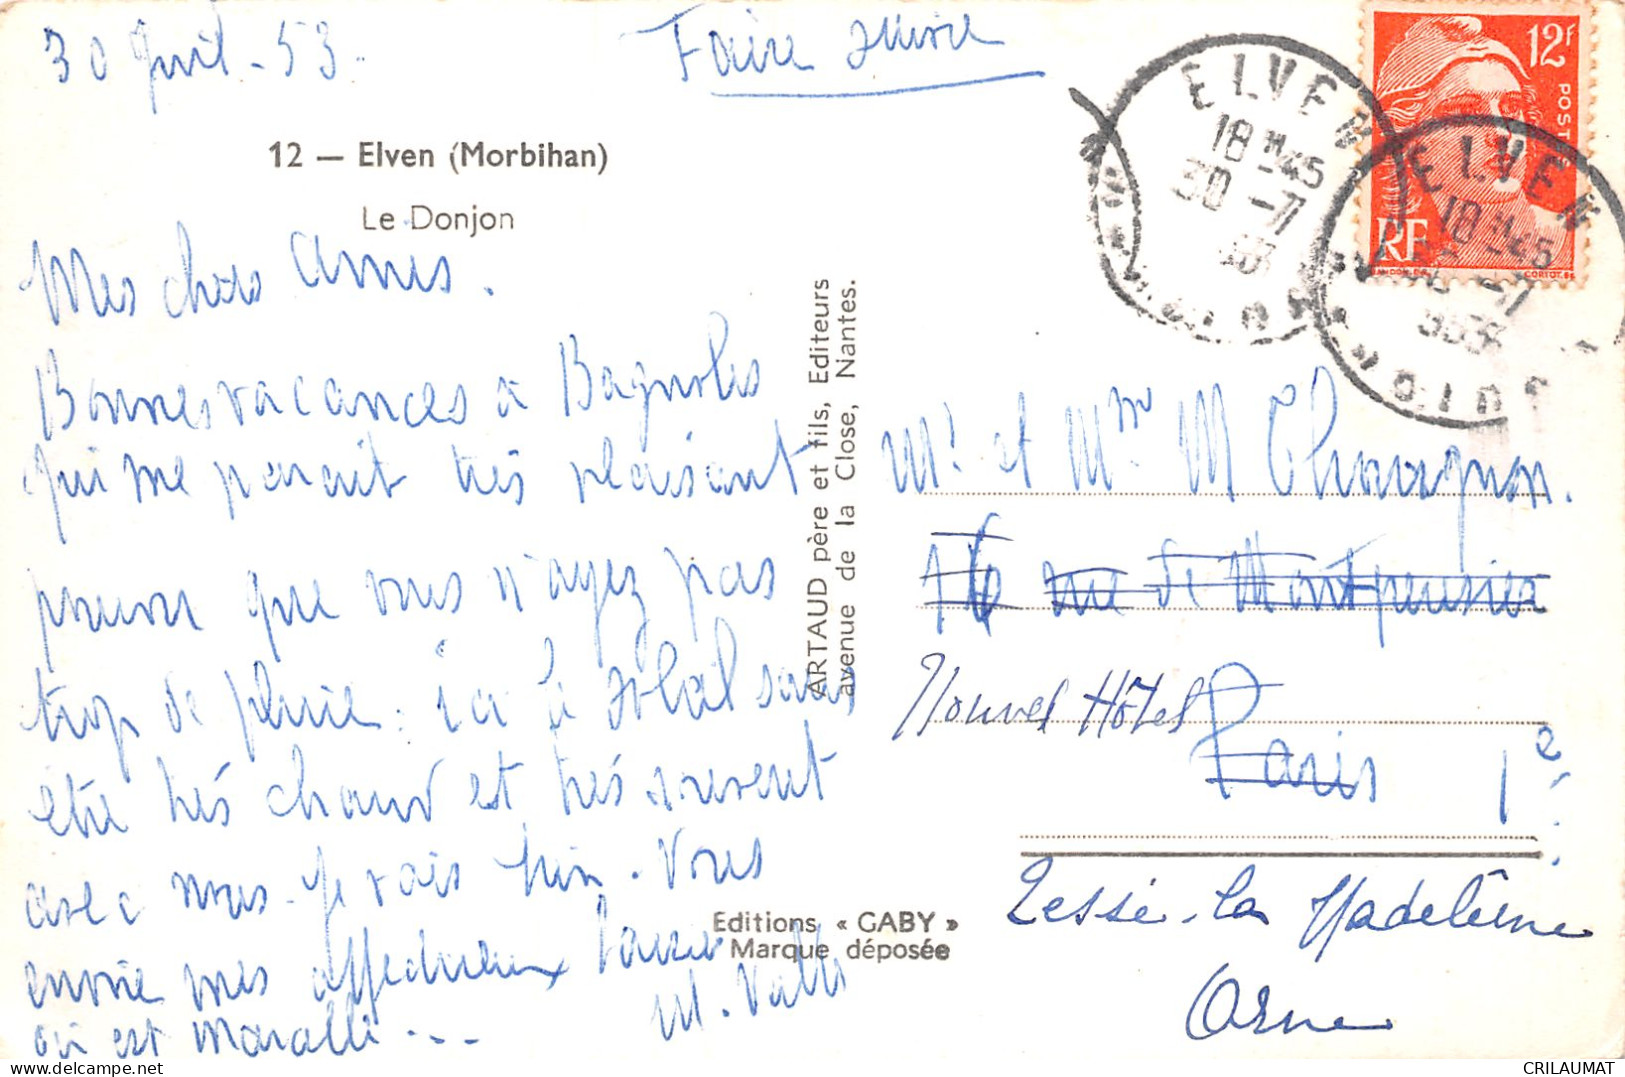 30 Juil. 53.
Faire suivre
12 — Elven (Morbihan)
Le Donjon
Mes chers Amis.
Bonnes vacances à Bagnoles
qui me parait très plaisant
pourvu que vous n'ayez pas
trop de pluie : ici le soleil sans
être très chaud est très souvent
avec nous. Je vais bien. Vous
envoie mes affectueux
où est
ARTAUD père et fils, Editeurs
avenue de la Close, Nantes.
Editions « GABY »
Marque déposée
ELVEN
18H45
30 -7
1953
12F
POSTES
RF
ELVEN
18H45
30 -7
1953
Mr et Mme M Chavagnon.
16 rue de Montpensier
Nouvel Hôtel
Paris 1e
Tessé-la Madeleine
Orne
CRILAUMAT